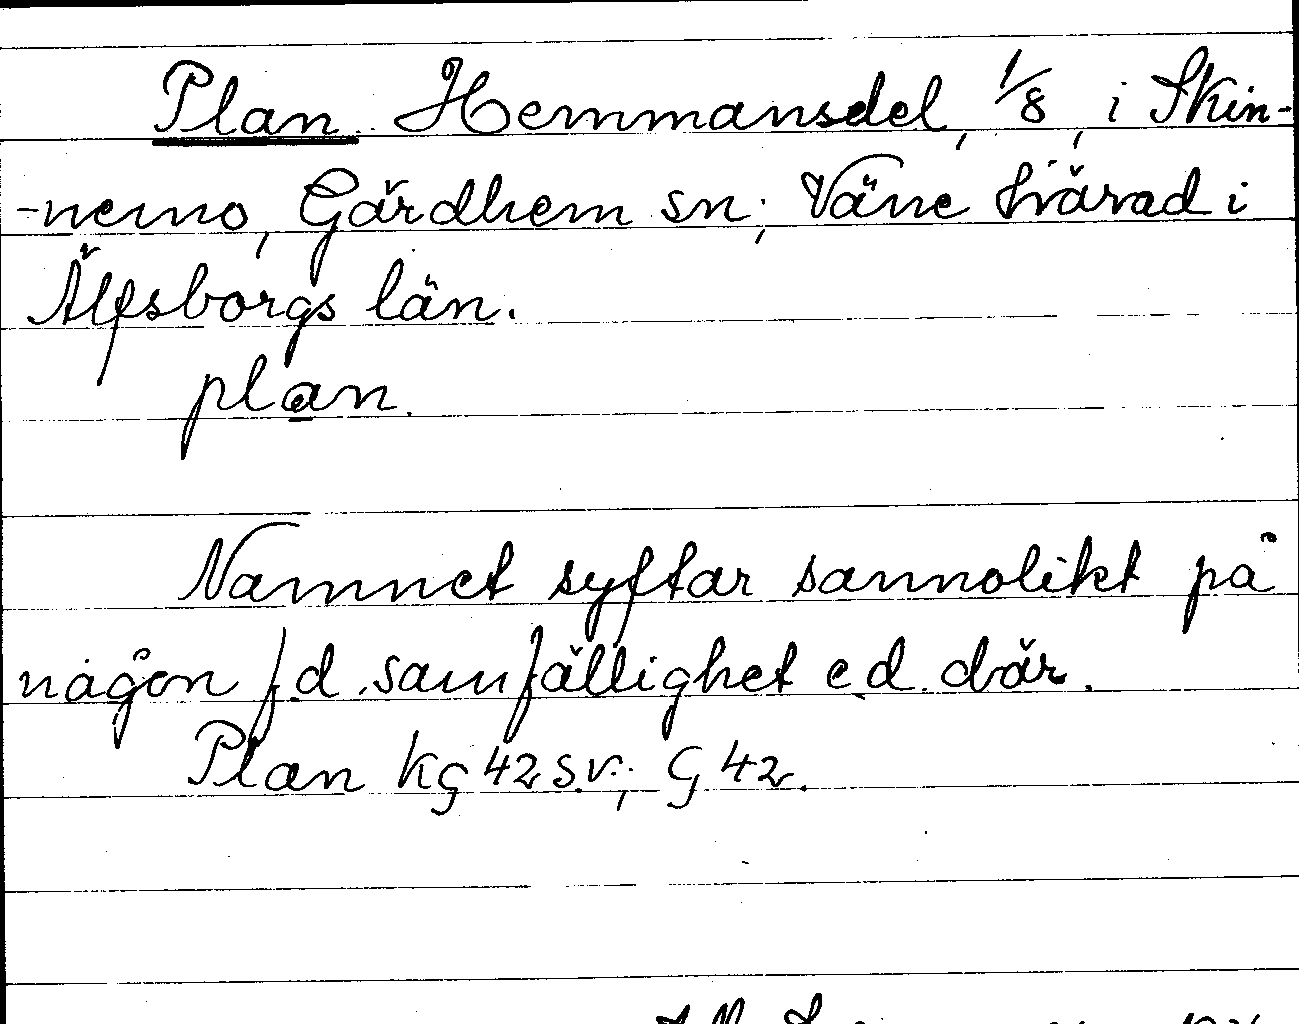 Plan. Hemmansdel, 1/8, i Skin-
-nemo, Gärdhem sn; Väne härad i
Älfsborgs län.
plan.
Namnet syftar sannolikt på
någon f.d. samfällighet e.d. där.
Plan kg 42 s.v.; G 42.